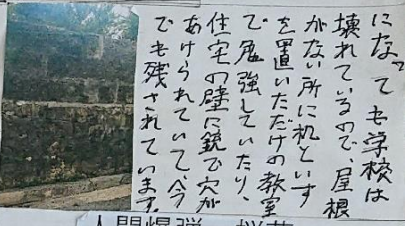 になっても学校は
壊れているので、屋根
がない所に机といす
を置いただけの教室
で勉強していたり、
住宅の壁に銃で穴が
あけられていて、今
でも残されています。
人間爆弾